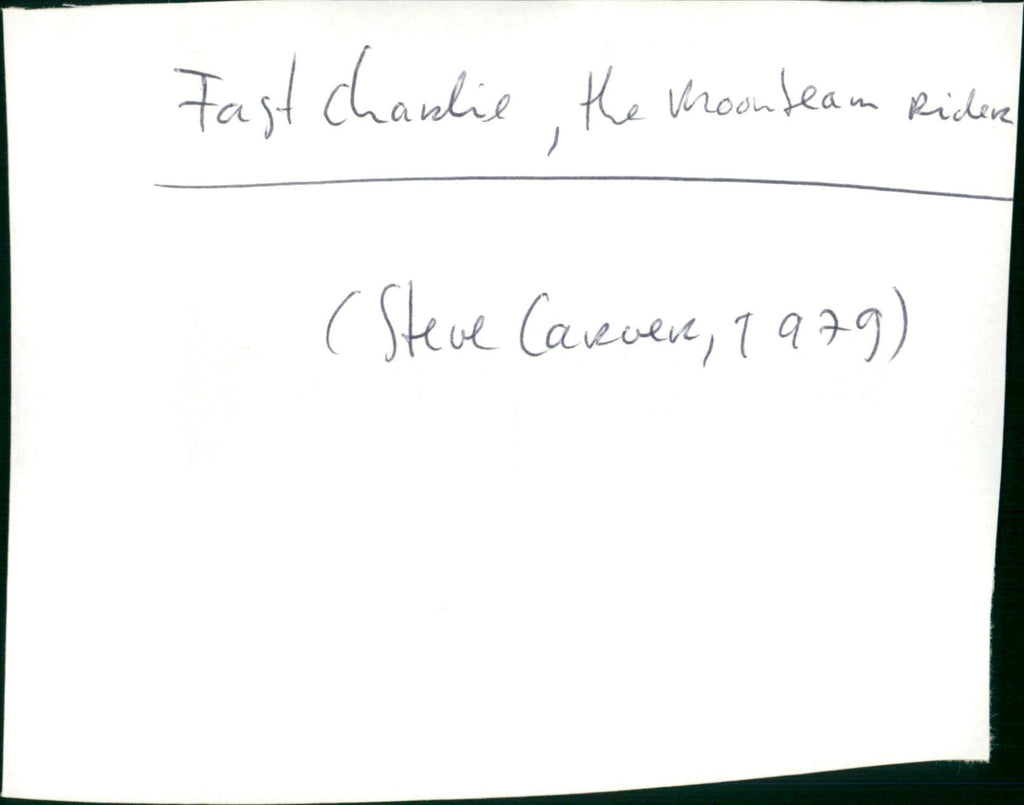 Fast Charlie, the Moonbeam Rider
(Steve Carver, 1979)